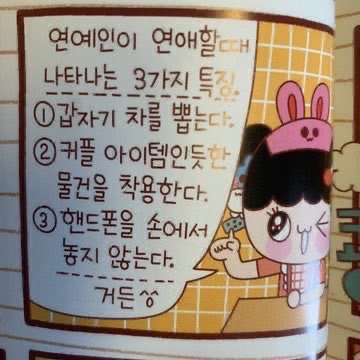 연예인이 연애할때
나타나는 3가지 특징.
① 갑자기 차를 뽑는다.
② 커플 아이템인듯한
물건을 착용한다.
③ 핸드폰을 손에서
놓지 않는다.
거든^^